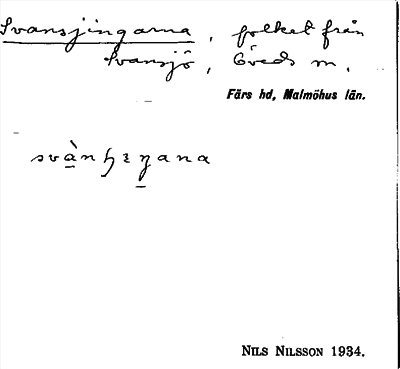 Svansjingarna, folket från
Svansjö, Öveds sn.
Färs hd, Malmöhus län.
NILS NILSSON 1934.